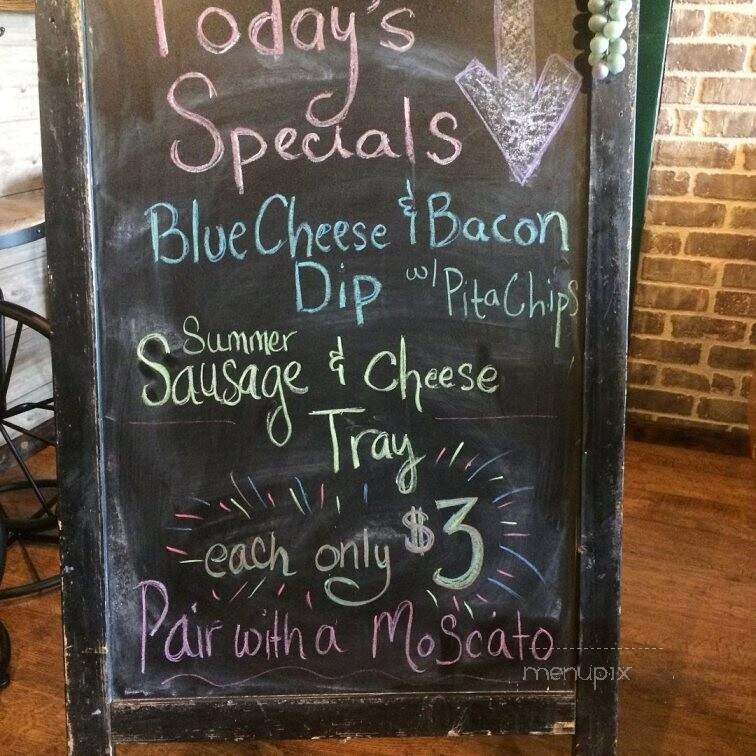 Today's
Specials
Blue Cheese & Bacon
Dip w/ Pita Chips
Summer
Sausage & Cheese
Tray
each only $3
Pair with a Moscato
menupix